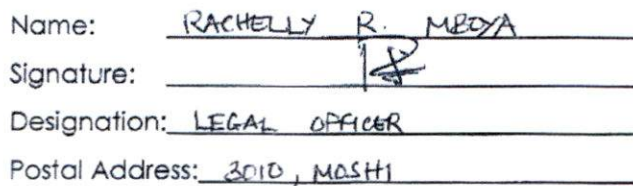 Name: RACHELLY R. MBOYA
Signature:
Designation: LEGAL OFFICER
Postal Address: 3010, MOSHI